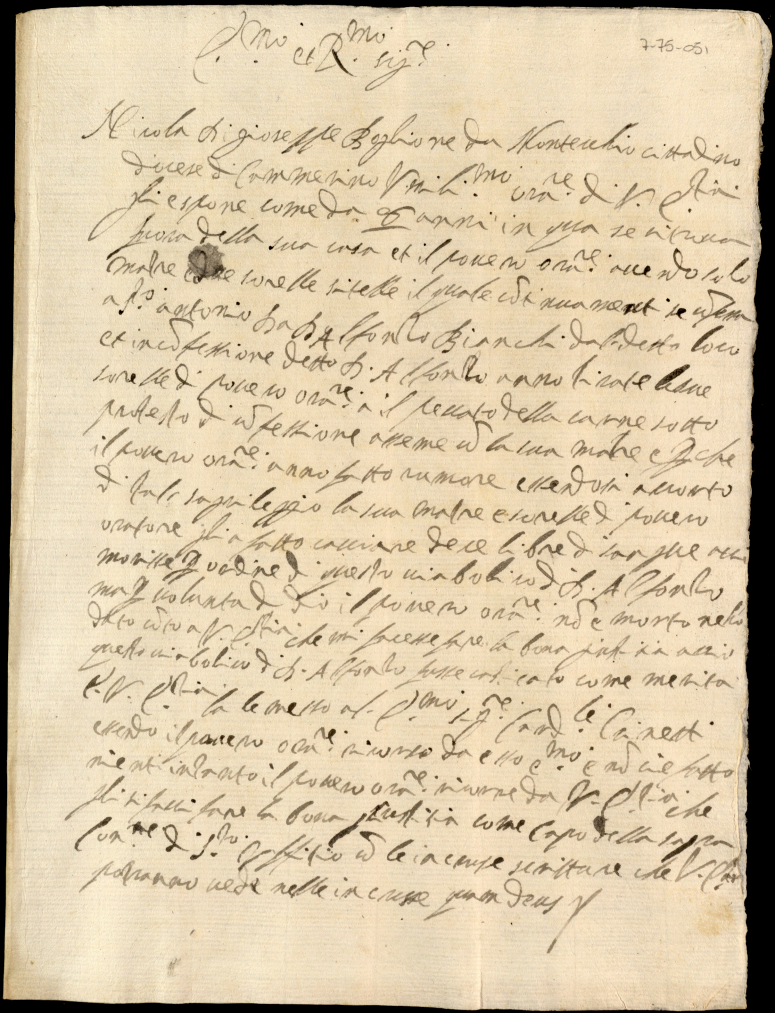 E.mo et R.mo sig.re
7-75-051
Nicola di gioseppe Boglione da Montecchio cittadino
diocese di Cammerino Umili.mo ora.re di V. E.tia
gli espone come da anni in qua se ritrova
fuora della sua casa et il povero ora.re avendo solo
matre e sorelle zitelle il quale cōtinuamenti se cōfessa
antonio da D. Alfonzo Bianchi dal detto loco
et in cōfessione detto D. Alfonzo anno tirate le due
sorelle di povero ora.re a il peccato della carne sotto
protesto di cōfessione asseme cō la sua matre e che
il povero ora.re anno fatto rumore essendosi accorto
di tale sagrileggio la sua matre e sorelle di povero
oratore gli a fatto cacciare dece libre di sangue acciò
morisse ordine di questo diabolico di D. Alfonzo
ma volunta di dio il povero ora.re nō è morto
dato cōto a V. E.tia che mi facesse fare la bona justitia acciò
questo diabolico di D. Alfonzo fusse casticato come merita
E V. E.tia la le messo al E.mo sig.re Card.le Cinetti
essendo il povero ora.re ricorso da esso e.mo e nō vie fatto
nienti intanto il povero ora.re ricorre da V. E.tia che
gli si facci fare la bona justitia come Capo della sagra
Con.ne di S.to Offitio cō le incruse scritture che V. E.tia
potranno vede nelle incruse quam deus